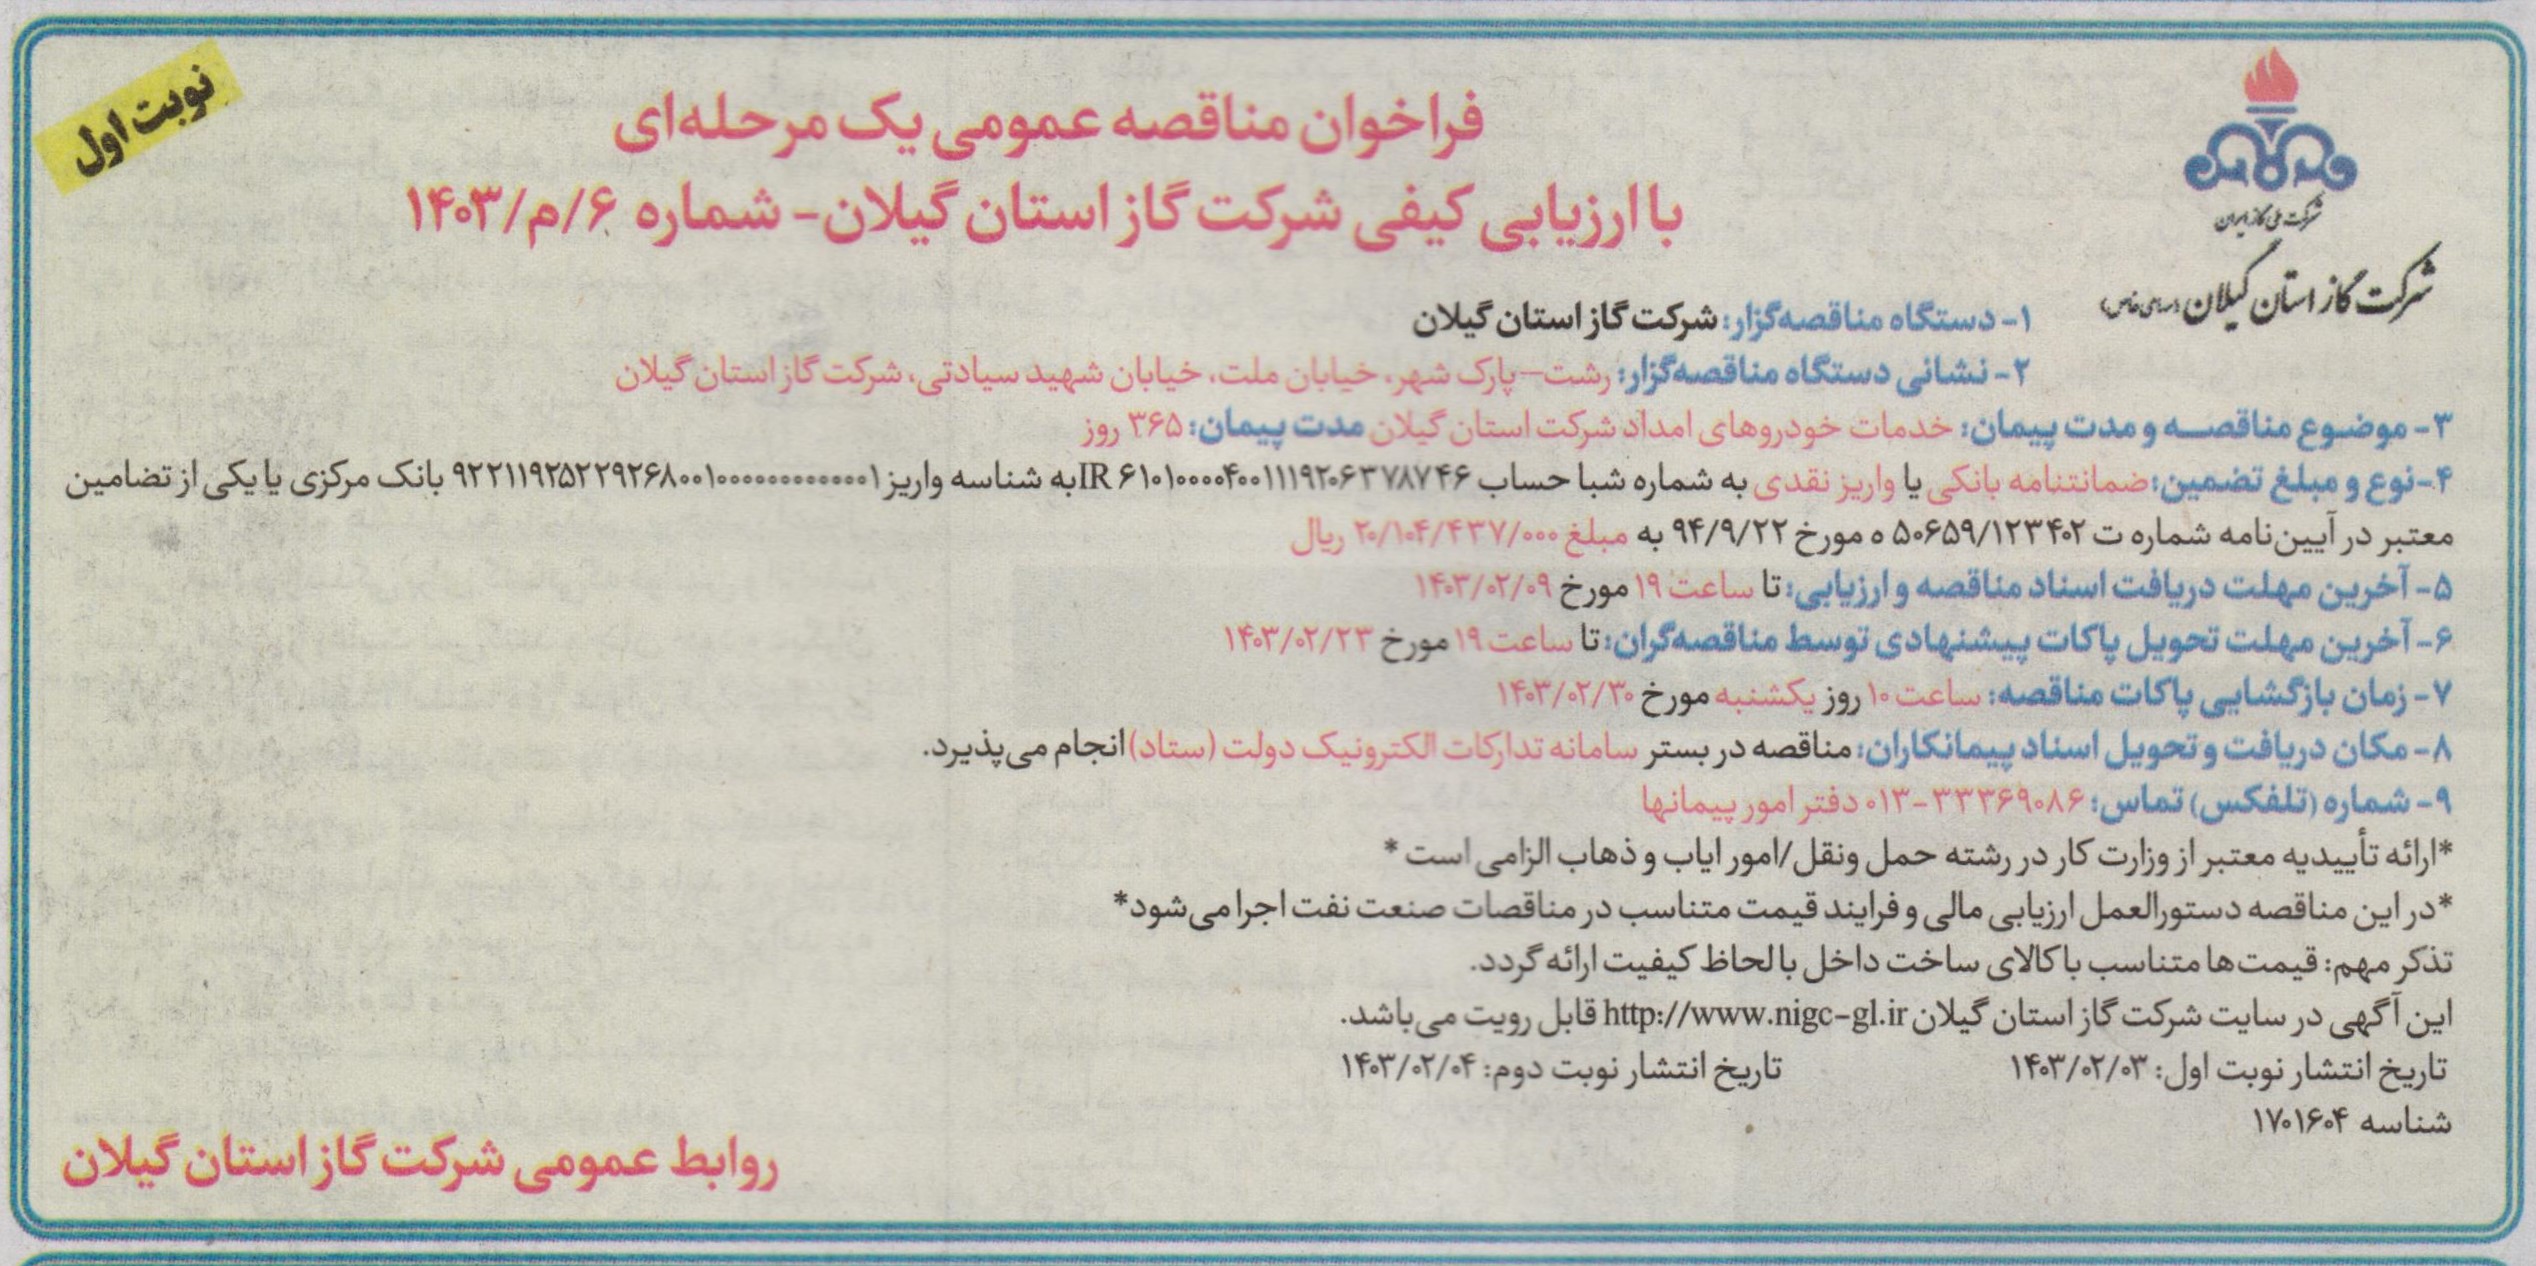 نوبت اول
شرکت ملی گاز ایران
شرکت گاز استان گیلان (سهامی خاص)
فراخوان مناقصه عمومی یک مرحله‌ای
با ارزیابی کیفی شرکت گاز استان گیلان- شماره ۶/م/۱۴۰۳
۱- دستگاه مناقصه‌گزار: شرکت گاز استان گیلان
۲- نشانی دستگاه مناقصه‌گزار: رشت-پارک شهر، خیابان ملت، خیابان شهید سیادتی، شرکت گاز استان گیلان
۳- موضوع مناقصه و مدت پیمان: خدمات خودروهای امداد شرکت استان گیلان مدت پیمان: ۳۶۵ روز
۴-نوع و مبلغ تضمین: ضمانتنامه بانکی یا واریز نقدی به شماره شبا حساب IR ۶۱۰۱۰۰۰۰۴۰۰۱۱۱۱۹۲۰۶۳۷۸۷۴۶ به شناسه واریز ۹۲۲۱۱۹۲۵۲۲۹۲۶۸۰۰۱۰۰۰۰۰۰۰۰۰۰۰۰۱ بانک مرکزی یا یکی از تضامین
معتبر در آیین‌نامه شماره ت ۵۰۶۵۹/۱۲۳۴۰۲ ه مورخ ۹۴/۹/۲۲ به مبلغ ۲۰/۱۰۴/۴۳۷/۰۰۰ ریال
۵- آخرین مهلت دریافت اسناد مناقصه و ارزیابی: تا ساعت ۱۹ مورخ ۱۴۰۳/۰۲/۰۹
۶- آخرین مهلت تحویل پاکات پیشنهادی توسط مناقصه‌گران: تا ساعت ۱۹ مورخ ۱۴۰۳/۰۲/۲۳
۷- زمان بازگشایی پاکات مناقصه: ساعت ۱۰ روز یکشنبه مورخ ۱۴۰۳/۰۲/۳۰
۸- مکان دریافت و تحویل اسناد پیمانکاران: مناقصه در بستر سامانه تدارکات الکترونیک دولت (ستاد) انجام می‌پذیرد.
۹- شماره (تلفکس) تماس: ۳۳۳۶۹۰۸۶-۰۱۳ دفتر امور پیمانها
*ارائه تأییدیه معتبر از وزارت کار در رشته حمل ونقل/امور ایاب و ذهاب الزامی است *
*در این مناقصه دستورالعمل ارزیابی مالی و فرایند قیمت متناسب در مناقصات صنعت نفت اجرا می‌شود*
تذکر مهم: قیمت‌ها متناسب با کالای ساخت داخل با لحاظ کیفیت ارائه گردد.
این آگهی در سایت شرکت گاز استان گیلان http://www.nigc-gl.ir قابل رویت می‌باشد.
تاریخ انتشار نوبت اول: ۱۴۰۳/۰۲/۰۳ تاریخ انتشار نوبت دوم: ۱۴۰۳/۰۲/۰۴
شناسه ۱۷۰۱۶۰۴
روابط عمومی شرکت گاز استان گیلان